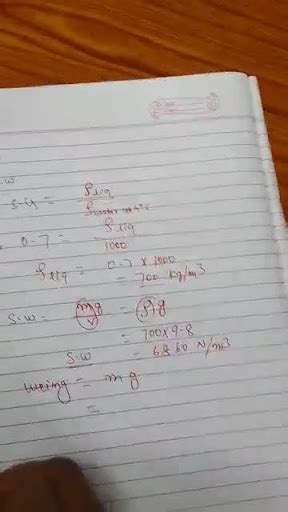 S.W
S.G = ρliq / ρwater at 4°c
0.7 = ρliq / 1000
ρliq = 0.7 x 1000
= 700 Kg/m3
S.W = mg / V = ρ.g
= 700x9.8
S.W = 6860 N/m3
= mg
=